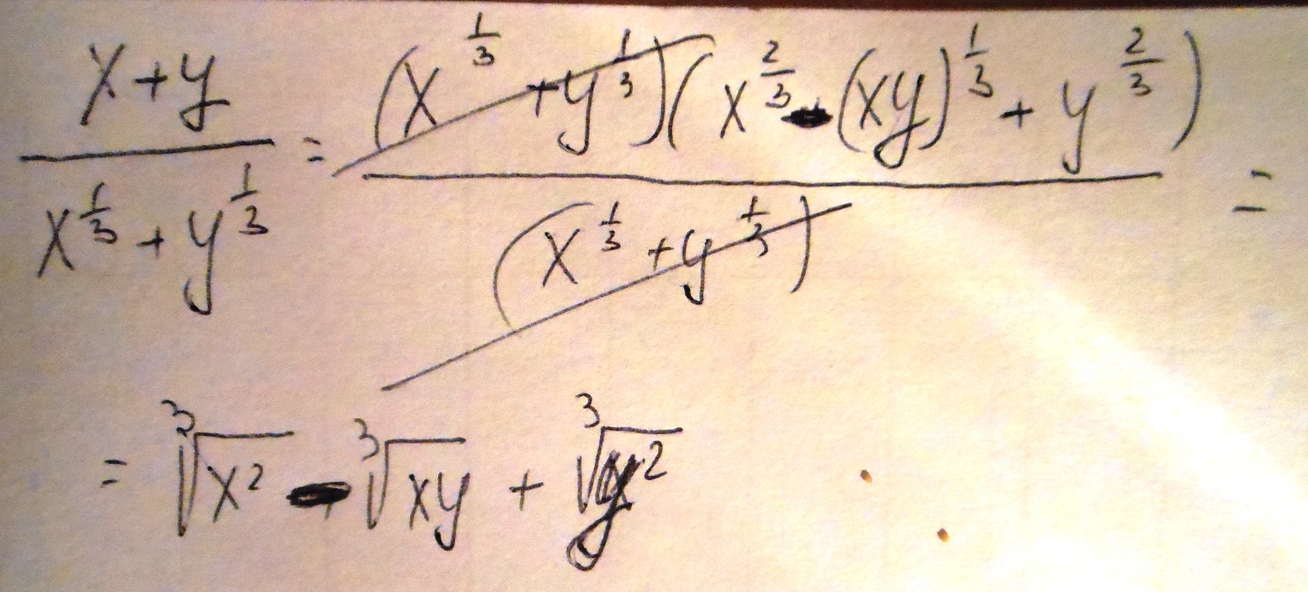 \frac{x+y}{x^{\frac{1}{3}}+y^{\frac{1}{3}}} = \frac{(x^{\frac{1}{3}}+y^{\frac{1}{3}})(x^{\frac{2}{3}}-(xy)^{\frac{1}{3}}+y^{\frac{2}{3}})}{(x^{\frac{1}{3}}+y^{\frac{1}{3}})} =
= \sqrt[3]{x^2} - \sqrt[3]{xy} + \sqrt[3]{y^2}